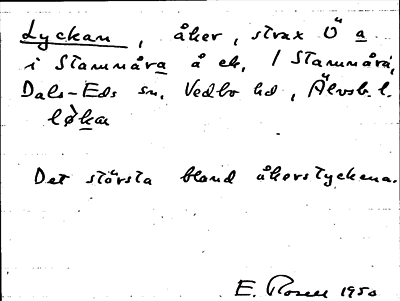 Lyckan, åker, strax Ö a
i Stammåra å ek, 1 Stammåra,
Dals-Eds sn, Vedbo hd, Älvsb. l.
lø̀ka
Det största bland åkerstyckena.
E. Rosell 1950